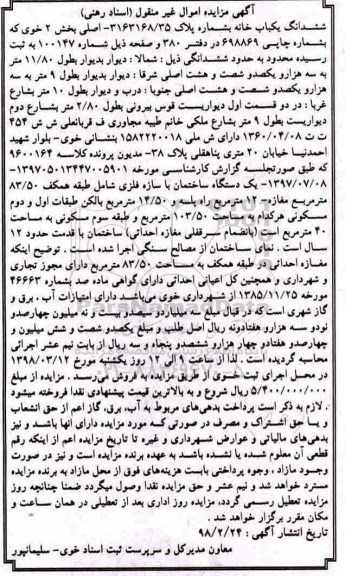 آگهی مزایده اموال غیر منقول (اسناد رهنی)
ششدانگ یکباب خانه بشماره پلاک ۳۱۶۳۱۶۸/۳۵- اصلی بخش ۲ خوی که
بشماره چاپی ۶۹۸۸۶۹ در دفتر ۳۸۰ و صفحه ذیل شماره ۱۰۰۱۴۷ به ثبت
رسیده محدود به حدود ششدانگی ذیل : شمالا : دیوار بدیوار بطول ۱۱/۸۰ متر
به سه هزارو یکصدو شصت و هشت اصلی شرقا : دیوار بدیوار بطول ۹ متر به سه
هزارو یکصدو شصت و هشت اصلی جنوبا : درب و دیوار بطول ۱۰ متر بشارع
غربا : در دو قسمت اول دیواریست قوس بیرونی بطول ۲/۸۰ متر بشارع دوم
دیواریست بطول ۹ متر بشارع ملکی خانم طیبه مجاوری ف قربانعلی ش ش ۴۵۴
ت ت ۱۳۶۰/۰۴/۰۸ دارای ش ملی ۱۵۸۲۲۲۰۰۱۸ بنشانی خوی- بلوار شهید
احمدنیا خیابان ۲۰ متری پناهقلی پلاک ۳۸- مدیون پرونده کلاسه ۹۶۰۰۱۶۴
که طبق صورتجلسه گزارش کارشناسی مورخه ۱۳۹۷۰۵۰۱۳۴۴۷۰۰۵۹۰۱-
۱۳۹۷/۰۷/۰۸- یک دستگاه ساختمان با سازه فلزی شامل طبقه همکف ۸۳/۵۰
مترمربع مغازه- ۱۲ مترمربع راه پله و ۱۴/۵۰ مترمربع بالکن طبقات اول و دوم
مسکونی هرکدام به مساحت ۱۰۳/۵۰ مترمربع و طبقه سوم مسکونی به مساحت
۴۰ مترمربع است (بانضمام سرقفلی مغازه احداثی) ساختمان با قدمت حدود ۱۲
سال است . نمای ساختمان از مصالح سنگی اجرا شده است . توضیح اینکه
مغازه احداثی در طبقه همکف به مساحت ۸۳/۵۰ مترمربع دارای مجوز تجاری
و شهرداری و همچنین کل اعیانی احداثی دارای گواهی ماده صد بشماره ۴۶۶۶۳
مورخه ۱۳۸۵/۱۱/۲۵ از شهرداری خوی می‌باشد دارای امتیازات آب ، برق و
گاز شهری است که در قبال مبلغ نه میلیاردو سیصدو بیست و نه میلیون چهارصدو
نودو سه هزارو هفتادونه ریال اصل طلب و مبلغ یکصدو شصت و شش میلیون و
چهارصدو هفتادو چهار هزارو ششصدو پنجاه و سه ریال از بابت نیم عشر اجرائی
محاسبه گردیده است . لذا از ساعت ۹ الی ۱۲ روز یکشنبه مورخ ۱۳۹۸/۰۳/۱۲
در محل اجرای ثبت خوی از طریق مزایده به فروش می‌رسد . مزایده از مبلغ
۵/۴۰۰/۰۰۰/۰۰۰ ریال شروع و به بالاترین قیمت پیشنهادی نقدا فروخته میشود
. لازم به ذکر است پرداخت بدهی‌های مربوط به آب، برق، گاز اعم از حق انشعاب
و یا حق اشتراک و مصرف در صورتی که مورد مزایده دارای آنها باشد و نیز
بدهی‌های مالیاتی و عوارض شهرداری و غیره تا تاریخ مزایده اعم از اینکه رقم
قطعی آن معلوم شده یا نشده باشد به عهده برنده مزایده است و نیز در صورت
وجود مازاد ، وجوه پرداختی بابت هزینه‌های فوق از محل مازاد به برنده مزایده
مسترد خواهد شد و نیم عشر و حق مزایده نقدا وصول میگردد ضمنا چنانچه روز
مزایده تعطیل رسمی گردد، مزایده روز اداری بعد از تعطیلی در همان ساعت و
مکان مقرر برگزار خواهد شد .
تاریخ انتشار آگهی : ۹۸/۲/۲۴
معاون مدیرکل و سرپرست ثبت اسناد خوی- سلیمانپور